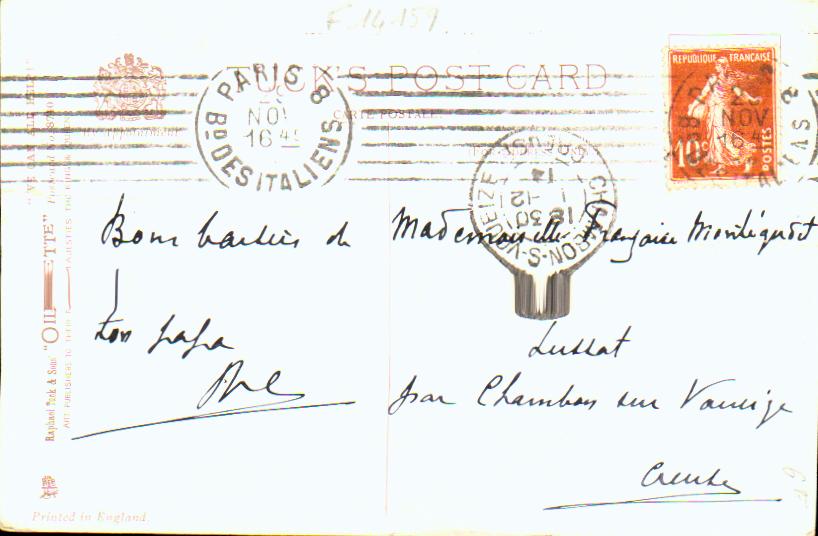 F-14-159
TUCK'S POST CARD
CARTE POSTALE
REPUBLIQUE FRANÇAISE
10c
POSTES
PARIS 8
NOV
16 45
Bd DES ITALIENS
2
NOV
16 45
CHAMBON-S-VOUEIZE
CREUSE
1 -12
18 30
14
Bons baisers de
Ton papa
Mademoiselle Françoise
Lussat
par Chambon sur Voueize
Creuse
Raphael Tuck & Sons' "OILETTE"
ART PUBLISHERS TO THEIR MAJESTIES THE KING & QUEEN
Printed in England.